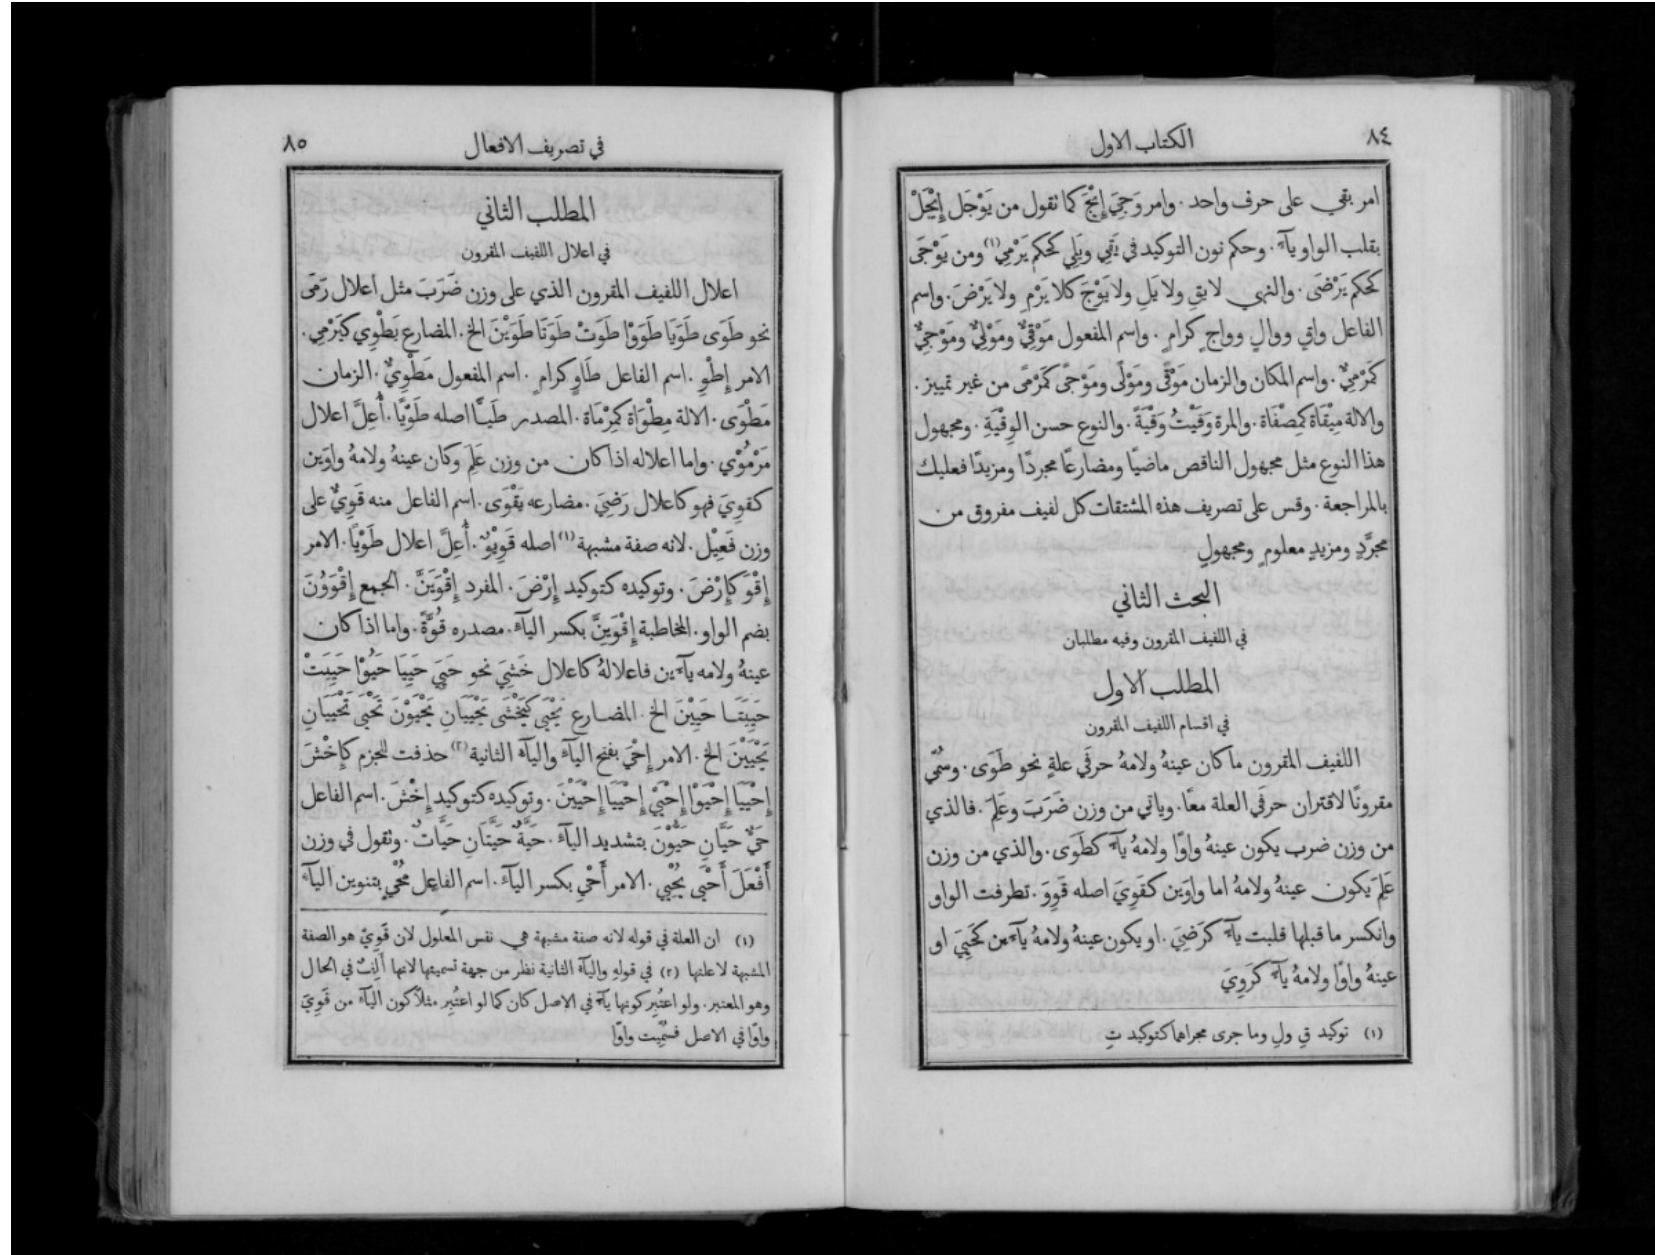 ٨٤
الكتاب الاول
امر بقي على حرف واحد. وامر وَجِيَ إِيْجَ كما نقول من يَوْجَل إِيْجَلْ
بقلب الواو ياءً. وحكم نون التوكيد في يَقِي ويَلِي كحكم يَرْمِي (١) ومن يَوْجَى
كحكم يَرْضَى. والنهي لا يقِ ولا يَلِ ولا يَوْجَ كلا يَرْمِ ولا يَرْضَ. واسم
الفاعل واقٍ ووالٍ وواجٍ كرامٍ. واسم المفعول مَوْقِيٌّ ومَوْلِيٌّ ومَوْجِيٌّ
كَمَرْمِيٌّ. واسم المكان والزمان مَوْقًى ومَوْلًى ومَوْجًى كَمَرْمًى من غير تمييز.
والالة مِيْقَاة كمِصْفَاة. والمرة وَقَيْتُ وَقْيَةً. والنوع حسن الوِقْيَةِ. ومجهول
هذا النوع مثل مجهول الناقص ماضيًا ومضارعًا مجردًا ومزيدًا فعليك
بالمراجعة. وقس على تصريف هذه المشتقات كل لفيف مفروق من
مجرَّدٍ ومزيدٍ معلومٍ ومجهولٍ
البحث الثاني
في اللفيف المقرون وفيه مطلبان
المطلب الاول
في اقسام اللفيف المقرون
اللفيف المقرون ما كان عينهُ ولامهُ حرفَي علةٍ نحو طَوَى. وسُمِّي
مقرونًا لاقتران حرفَي العلة معًا. وياتي من وزن ضَرَبَ وعَلِمَ. فالذي
من وزن ضرب يكون عينهُ واوًا ولامهُ ياءً كطَوَى. والذي من وزن
عَلِمَ يكون عينهُ ولامهُ اما واوَين كقَوِيَ اصله قَوِوَ. تطرفت الواو
وانكسر ما قبلها قلبت ياءً كرَضِيَ. او يكون عينهُ ولامهُ ياءَين كحَيِيَ او
عينهُ واوًا ولامهُ ياءً كرَوِيَ
(١) توكيد قِ ولِ وما جرى مجراهما كتوكيد ثِ
في تصريف الافعال
٨٥
المطلب الثاني
في اعلال اللفيف المقرون
اعلال اللفيف المقرون الذي على وزن ضَرَبَ مثل اعلال رَمَى
نحو طَوَى طَوَيَا طَوَوْا طَوَتْ طَوَتَا طَوَيْنَ الخ. المضارع يَطْوِي كيَرْمِي.
الامر إِطْوِ. اسم الفاعل طَاوٍ كرامٍ. اسم المفعول مَطْوِيٌّ. الزمان
مَطْوَى. الالة مِطْوَاة كمِرْمَاة. المصدر طَيًّا اصله طَوْيًا. أُعِلَّ اعلال
مَرْمُوْي. واما اعلاله اذا كان من وزن عَلِمَ وكان عينهُ ولامهُ واوَين
كقوِيَ فهو كاعلال رَضِيَ. مضارعه يَقْوَى. اسم الفاعل منه قَوِيٌّ على
وزن فَعِيْل. لانه صفة مشبهة (١) اصله قَوِيْوٌ. أُعِلَّ اعلال طَوْيًا. الامر
إِقْوَ كإِرْضَ. وتوكيده كتوكيد إِرْضَ. المفرد إِقْوَيَنَّ. الجمع إِقْوَوُنَ
بضم الواو. المخاطبة إِقْوَيِنَّ بكسر الياءِ. مصدره قُوَّةً. واما اذا كان
عينهُ ولامه ياءَين فاعلالهُ كاعلال خَشِيَ نحو حَيِيَ حَيِيَا حَيُوْا حَيِيَتْ
حَيِيَتَا حَيِيْنَ الخ. المضارع يَحْيَى كيَخْشَى يَحْيَيَانِ يَحْيَوْنَ تَحْيَى تَحْيَيَانِ
يَحْيَيْنَ الخ. الامر إِحْيَ بفتح الياءِ والياءَ الثانية (٢) حذفت للجزم كإِخْشَ
إِحْيَيَا إِحْيَوْا إِحْيَيْ إِحْيَيَا إِحْيَيْنَ. وتوكيده كتوكيد إِخْشَ. اسم الفاعل
حَيٌّ حَيَّانِ حَيُّوْنَ بتشديد الياءِ. حَيَّةٌ حَيَّتَانِ حَيَّاتٌ. ونقول في وزن
أَفْعَلَ أَحْيَى يُحْيِي. الامر أَحْيِ بكسر الياءِ. اسم الفاعل مُحْيٍ بتنوين الياءِ
(١) ان العلة في قوله لانه صفة مشبهة هي نفس المعلول لان قَوِيّ هو الصفة
المشبهة لا علتها (٢) في قولهِ والياءَ الثانية نظر من جهة تسميتها لانها أَلِفٌ في الحال
وهو المعتبر. ولو اعتُبِر كونها ياءً في الاصل كان كما لو اعتُبِر مثلًا كون الياءِ من قَوِيَ
واوًا في الاصل فسُمِّيت واوًا